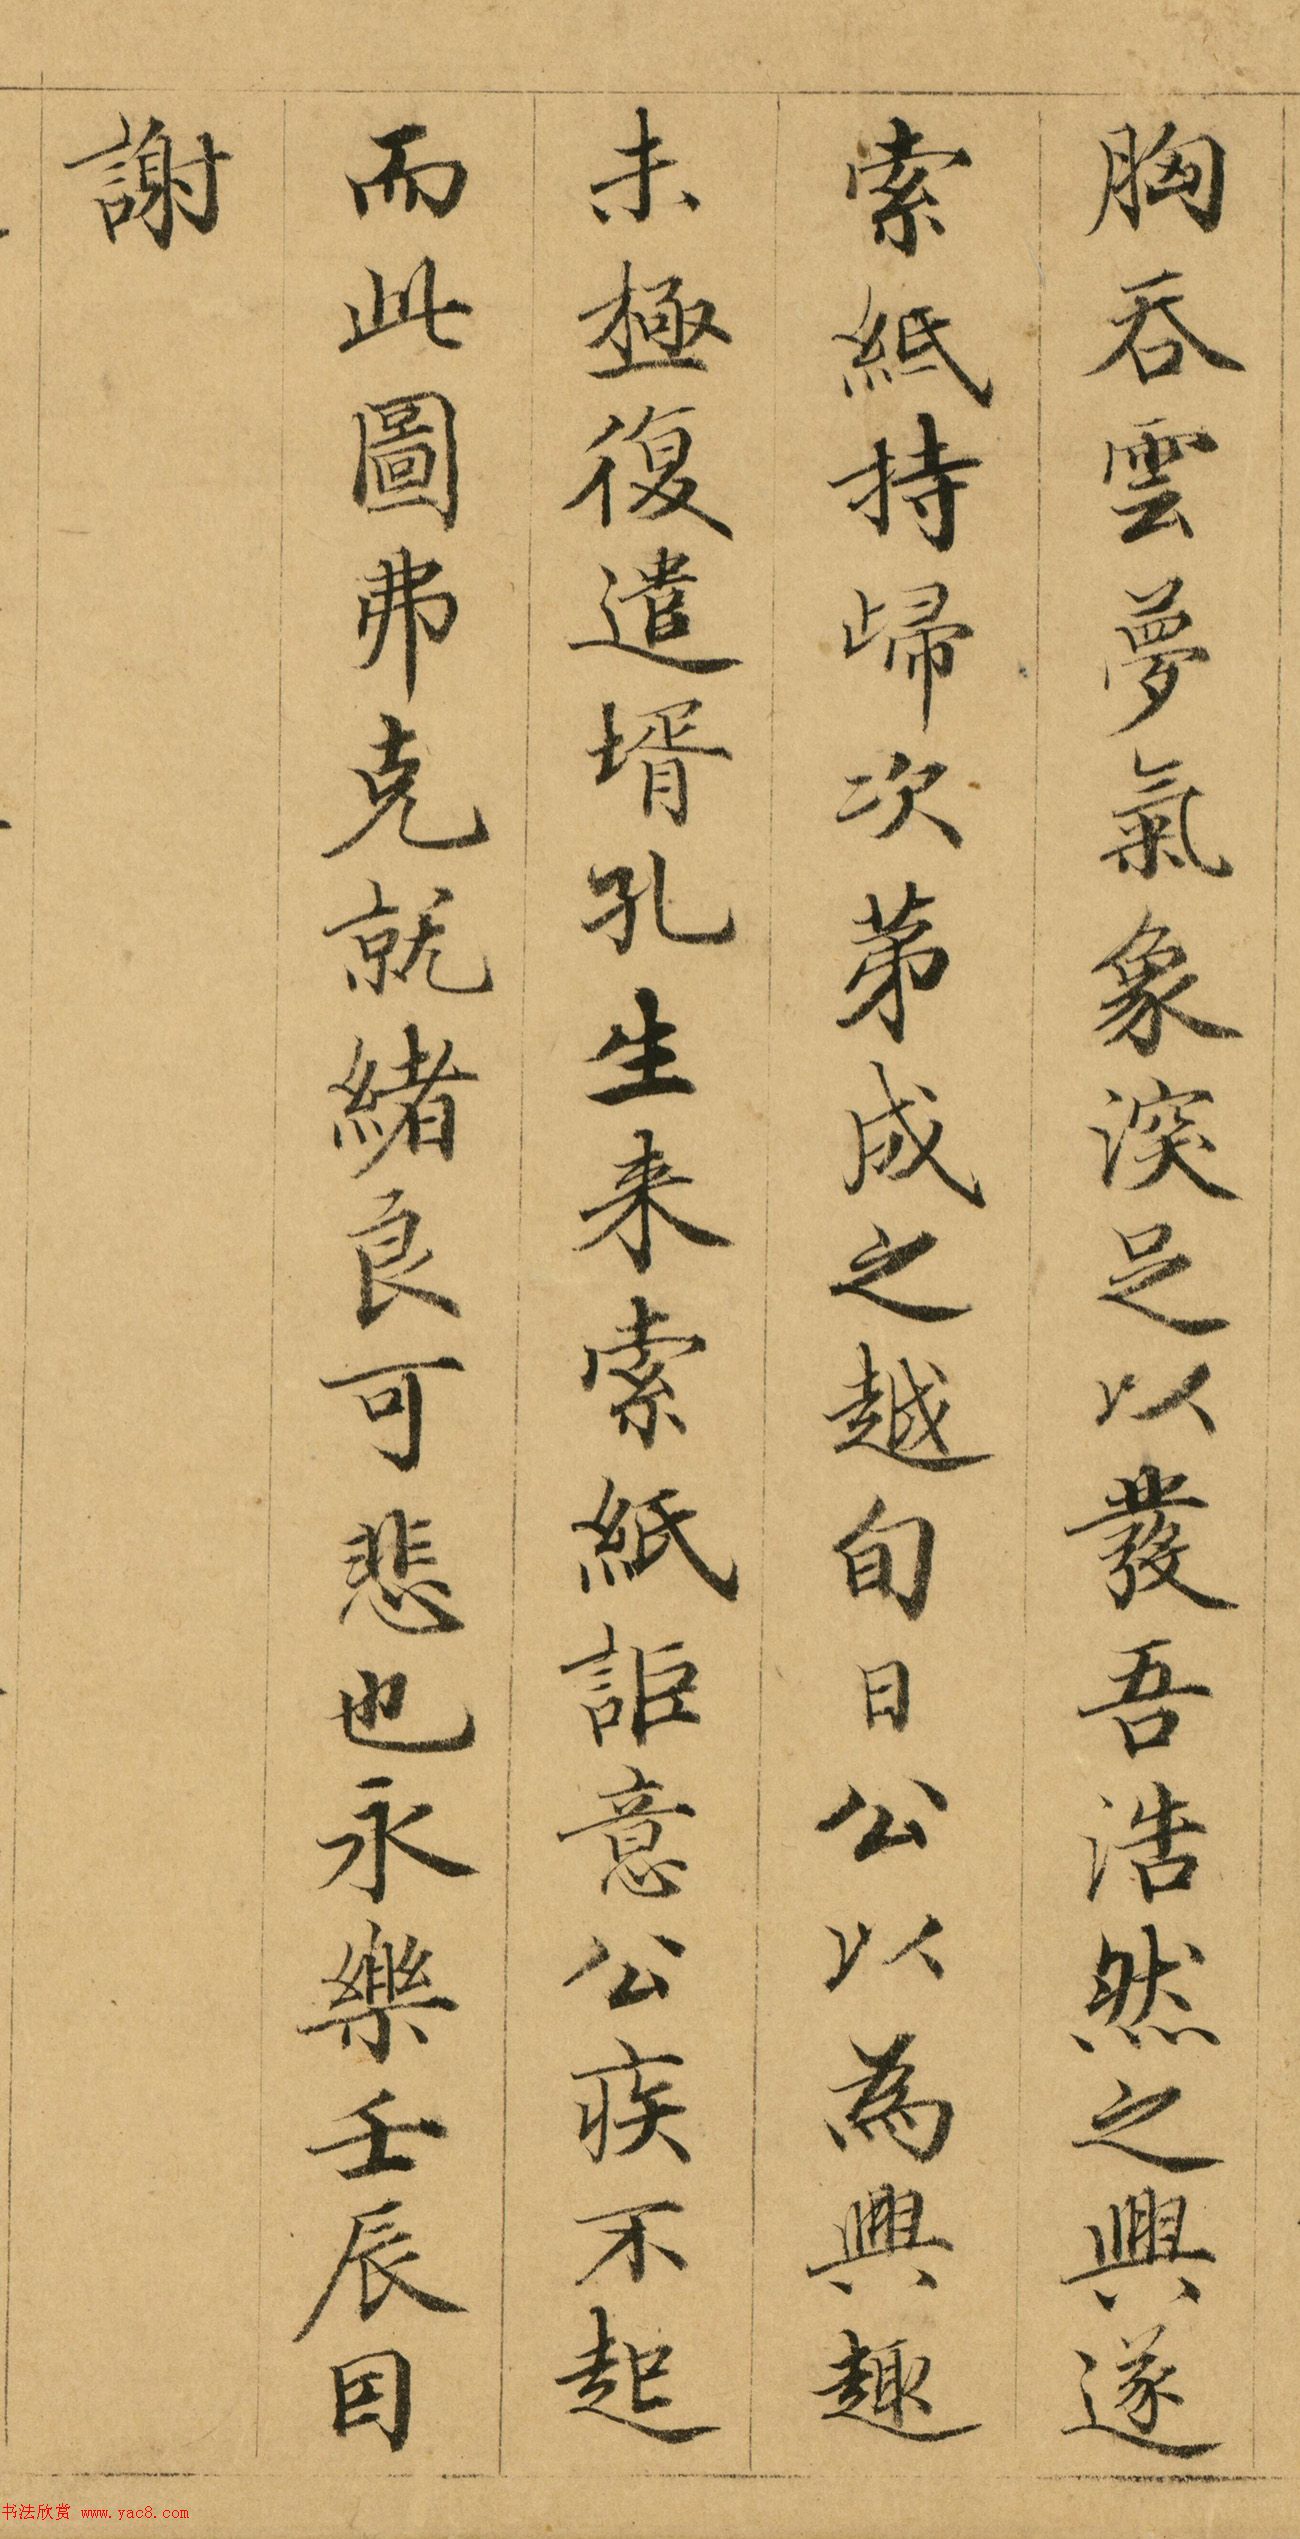 胸吞雲夢氣象深足以發吾浩然之興遂
索紙持歸次第成之越旬日公以為興趣
未極復遣壻孔生來索紙詎意公疾不起
而此圖弗克就緒良可悲也永樂壬辰因
謝
书法欣赏 www.yac8.com